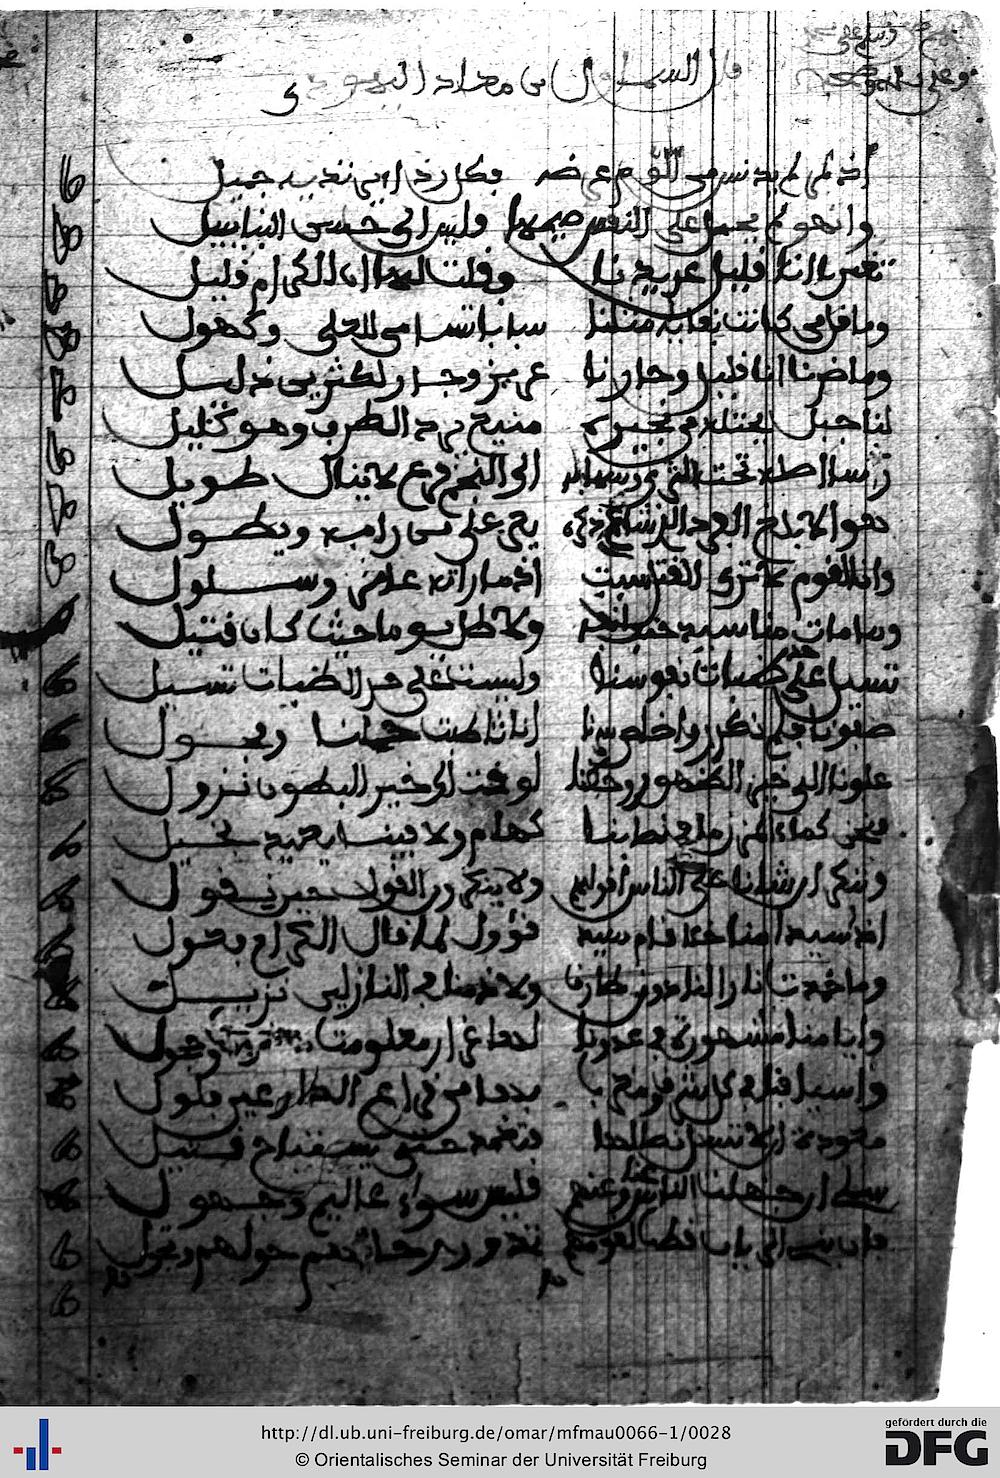 قال السموأل ابن عاديا اليهودي
إذ المرء لم يدنس من اللؤم عرضه فكل رداء يرتديه جميل
وان هو لم يحمل على النفس ضيمها فليس الى حسن الثنا سبيل
تعيرنا انا قليل عديدنا وقلت لها ان الكرام قليل
وما قل من كانت بقاياه مثلنا شباب تسامى للعلى وكهول
وما ضرنا انا قليل وجارنا عزيز وجار الاكثرين ذليل
لنا جبل يحتله من نجيره منيع يرد الطرف وهو كليل
رسا اصله تحت الثرى وسما به الى النجم فرع لا ينال طويل
هو الابلق الفرد الذي شاع ذكره يعز على من رامه ويطول
وانا لقوم لا نرى القتل سبة اذ ما راته عامر وسلول
وما مات منا سيد حتف انفه ولا طل يوما حيث كان قتيل
تسيل على حد الظبات نفوسنا وليست على غير الظبات تسيل
صفونا فلم نكدر واخلص سرنا اناث اطابت حملنا وفحول
علونا الى خير الظهور وحطنا لوقت الى خير البطون نزول
فنحن كماء المزن ما في نصابنا كهام ولا فينا يعد بخيل
وننكر ان شئنا على الناس قولهم ولا ينكرون القول حين نقول
اذ سيد منا خلا قام سيد قؤول لما قال الكرام فعول
وما خمدت نار لنا دون طارق ولا ذمنا في النازلين نزيل
وايامنا مشهورة في عدونا لها غرر معلومة وحجول
واسيافنا في كل شرق ومغرب بها من قراع الدارعين فلول
معودة ان لا تسل نصالها فتغمد حتى يستباح قتيل
سلي ان جهلت الناس عنا وعنهم فليس سواء عالم وجهول
فان بني الريان قطب لقومهم تدور رحاهم حولهم وتجول
http://dl.ub.uni-freiburg.de/omar/mfmau0066-1/0028
© Orientalisches Seminar der Universität Freiburg
gefördert durch die
DFG